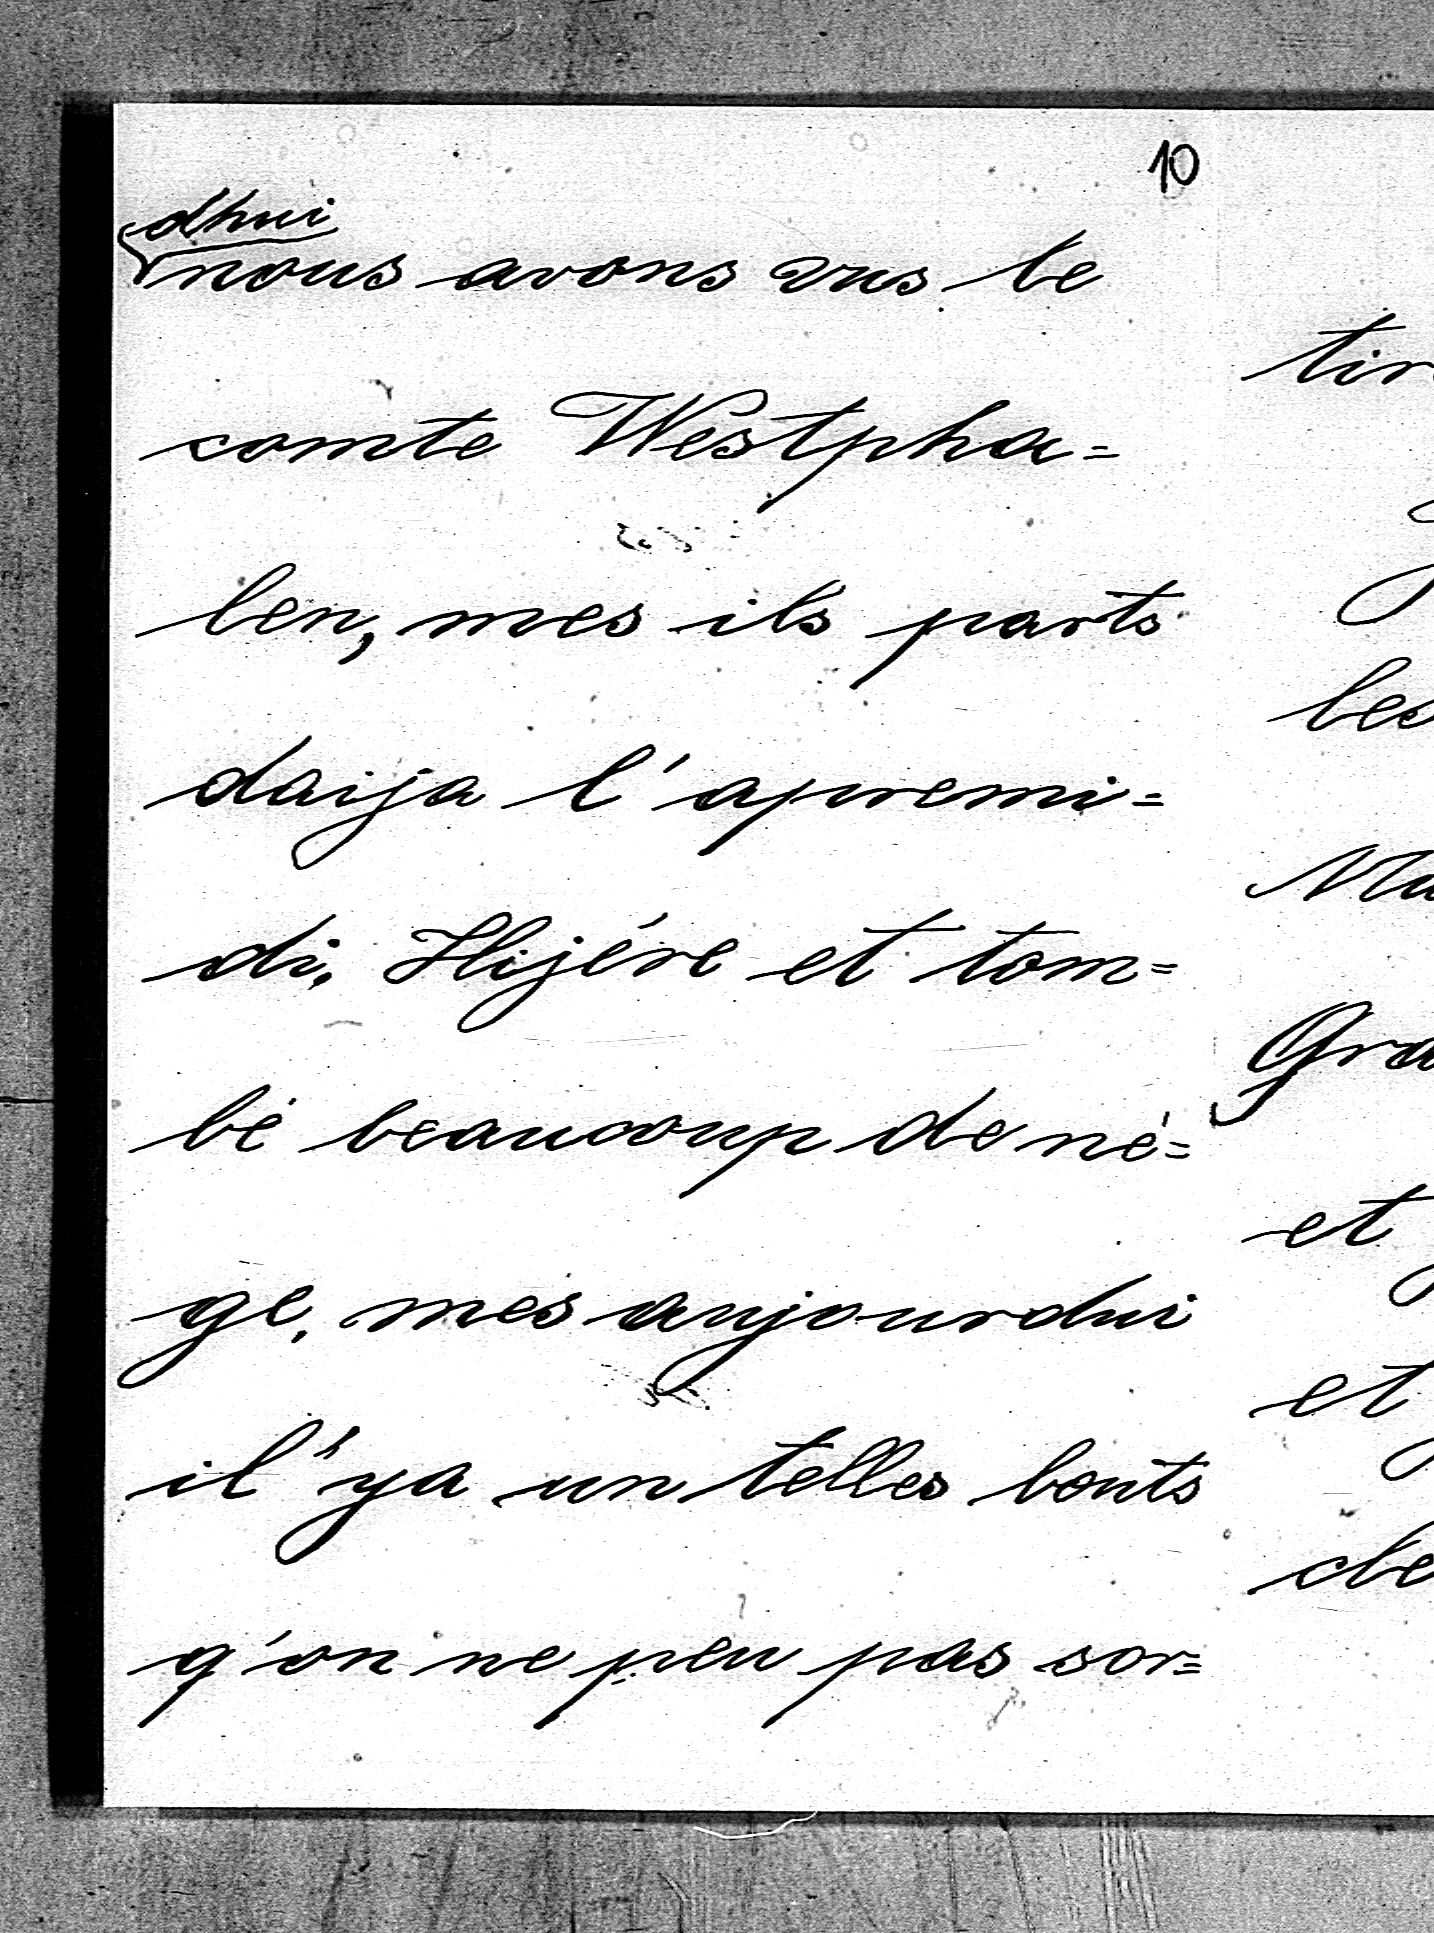 10
dhui
nous avons vus le
comte Westpha=
len, mes ils parts
daija l'apremi=
di. Hijére et tom=
bé beaucoup de né=
ge, mes aujourdui
il'ya un telles bouts
q'on ne peu pas sor=
tir
les
Gra
et
et